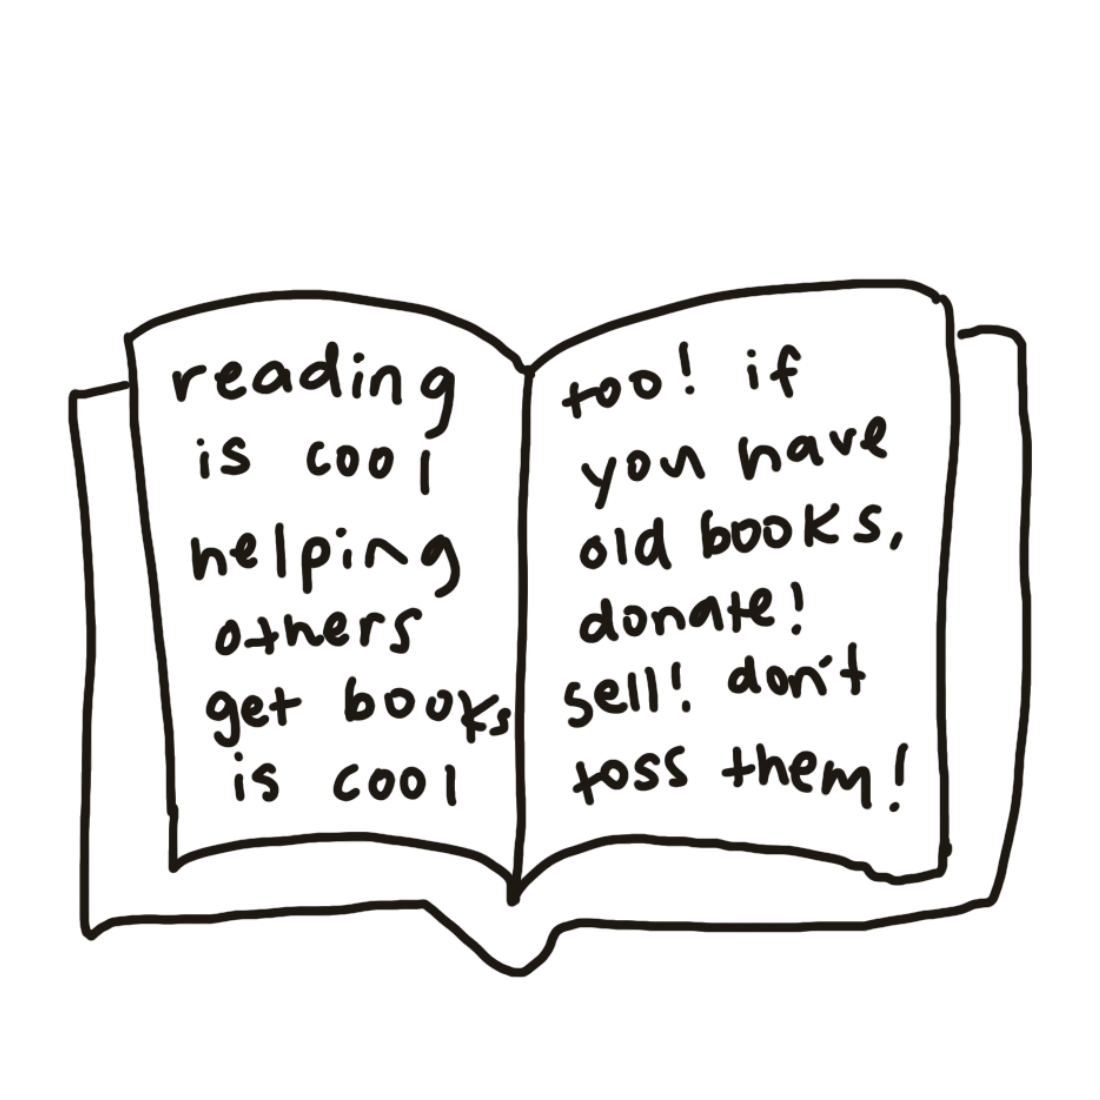 reading
is cool
helping
others
get books
is cool
too! if
you have
old books,
donate!
sell! don't
toss them!